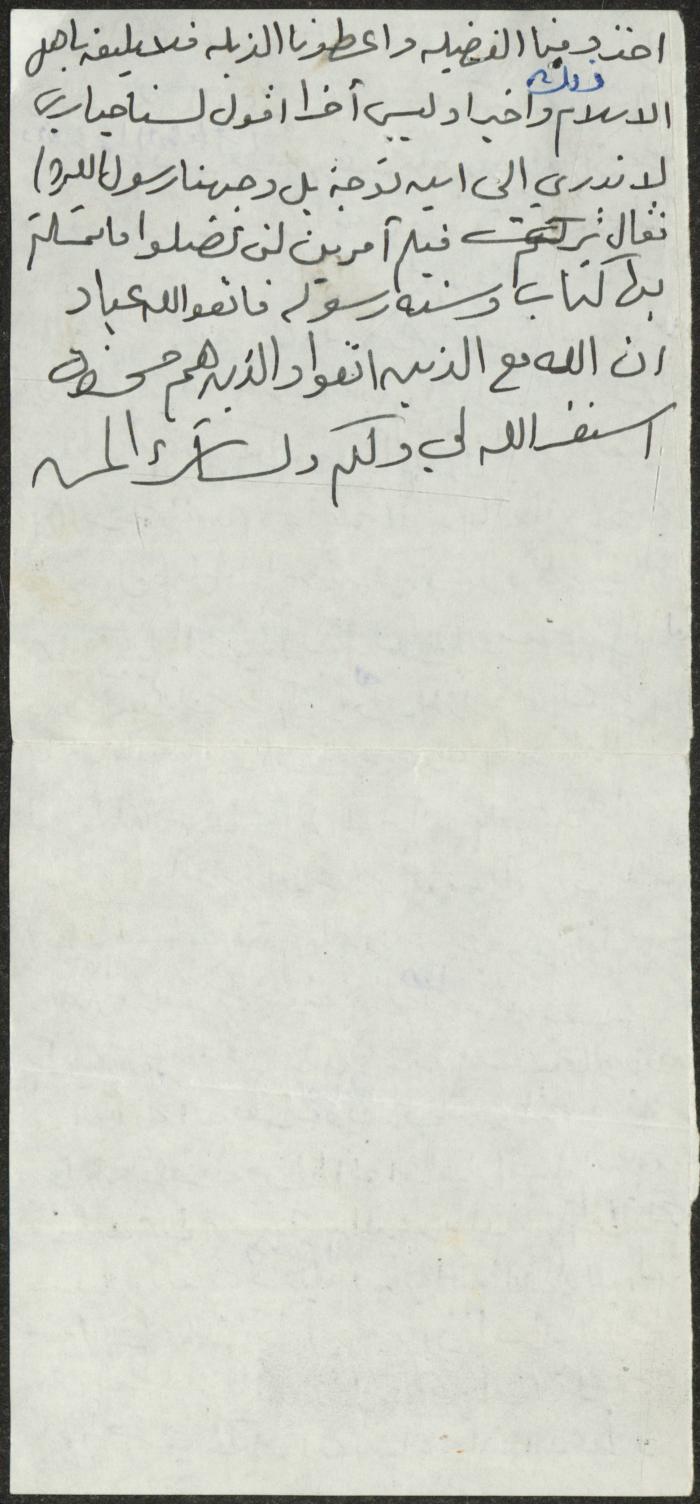 اخذو منا الفضيله واعطونا الرذيله فلا يليق باهل
ذلك
الاسلام واخيرا وليس أخرا اقول لسنا حيارى
لا ندري الى اين نتوجة بل وجهنا رسول الله
فقال تركت فيكم أمرين لن تضلوا ما تمسكتم
بها كتاب وسنة رسوله فاتقوا الله عباد
ان الله مع الذين اتقوا والذين هم محسنون
استغفر الله لي ولكم ولسائر المسلمين